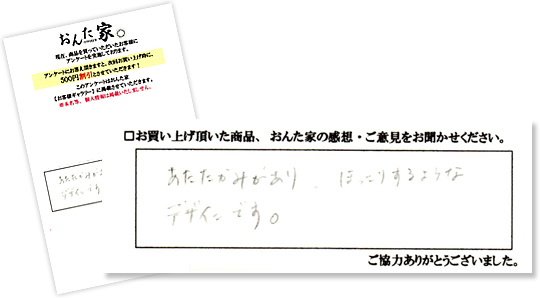 おんた家。
現在、商品を買っていただいたお客様に
アンケートを実施しております。
アンケートにお答え頂きますと、次回お買い上げ時に、
500円割引とさせていただきます!
このアンケートはおんた家
【お客様ギャラリー】に掲載させていただきます。
※お名前、個人情報は掲載いたしません。
あたたかみがあ
デザインです
□お買い上げ頂いた商品、おんた家の感想・ご意見をお聞かせください。
あたたかみがあり、ほっこりするような
デザインです。
ご協力ありがとうございました。